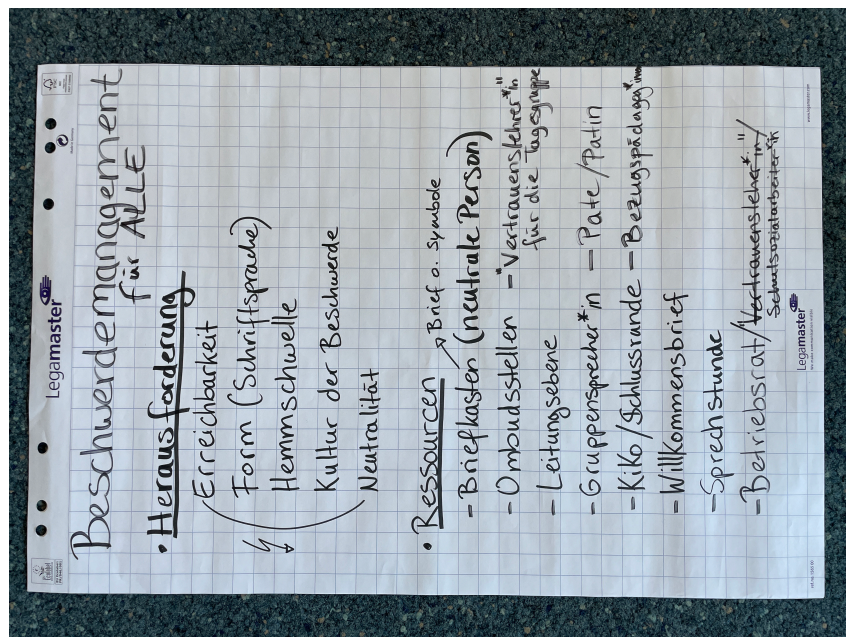 Legamaster
Beschwerdemanagement
für ALLE
• Herausforderung
Erreichbarkeit
Form (Schriftsprache)
Hemmschwelle
Kultur der Beschwerde
Neutralität
• Ressourcen
Brief o. Symbole
- Briefkasten (neutrale Person)
- Ombudsstellen - "Vertrauenslehrer*in"
für die Tagesgruppe
- Leitungsebene
- Gruppensprecher*in - Pate/Patin
- KiKo/Schlussrunde - Bezugspädagog*inn
- Willkommensbrief
- Sprechstunde
- Betriebsrat/"Vertrauenslehrer*in"/
Schulsozialarbeiter*in
Legamaster